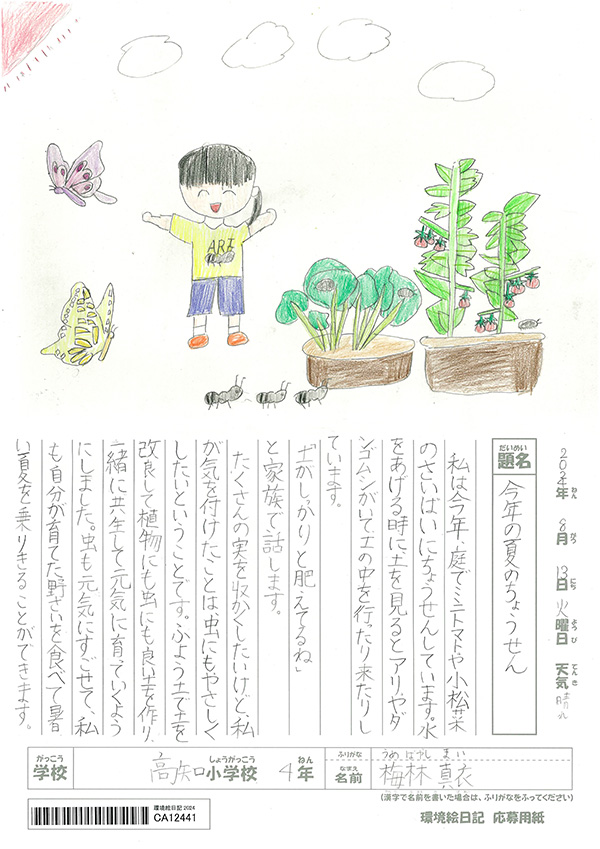 ARI
2024年 8月 13日 火曜日 天気 晴れ
ねん がつ にち ようび てんき
だいめい
題名 今年の夏のちょうせん
私は今年、庭でミニトマトや小松菜
のさいばいにちょうせんしています。水
をあげる時に土を見るとアリやダ
ンゴムシがいて土の中を行ったり来たりし
ています。
「土がしっかりと肥えてるね」
と家族で話します。
たくさんの実を収かくしたいけど、私
が気を付けたことは虫にもやさしく
したいということです。ふよう土で土を
改良して植物にも虫にも良い土を作り、
一緒に共生して元気に育っていくよう
にしました。虫も元気にすごせて、私
も自分が育てた野さいを食べて暑
い夏を乗りきることができます。
がっこう しょうがっこう ねん ふりがな うめばやし まい
学校 高知小学校 4年 なまえ 名前 梅林 真衣
(漢字で名前を書いた場合は、ふりがなをふってください)
環境絵日記 2024
CA12441
環境絵日記 応募用紙